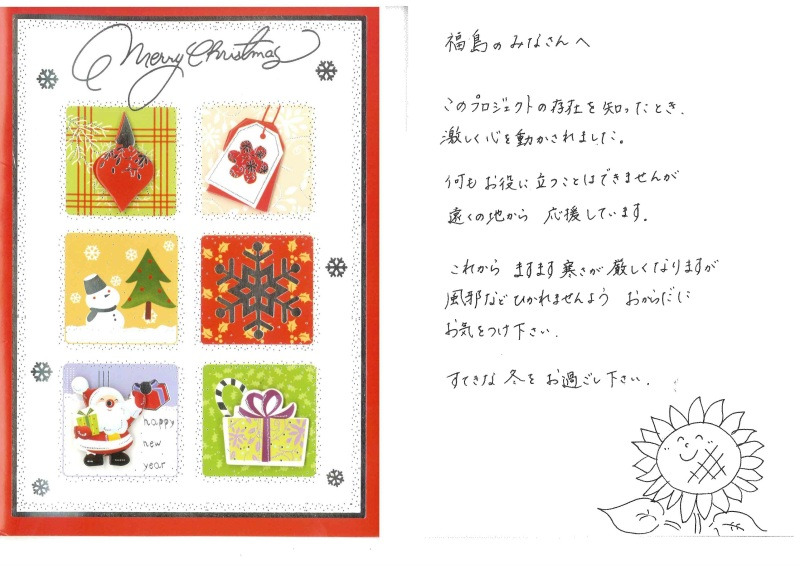 Merry Christmas
happy
new
year
福島のみなさんへ
このプロジェクトの存在を知ったとき、
激しく心を動かされました。
何もお役に立つことはできませんが
遠くの地から 応援しています。
これから ますます寒さが厳しくなりますが
風邪などひかれませんよう おからだに
お気をつけ下さい.
すてきな冬をお過ごし下さい.